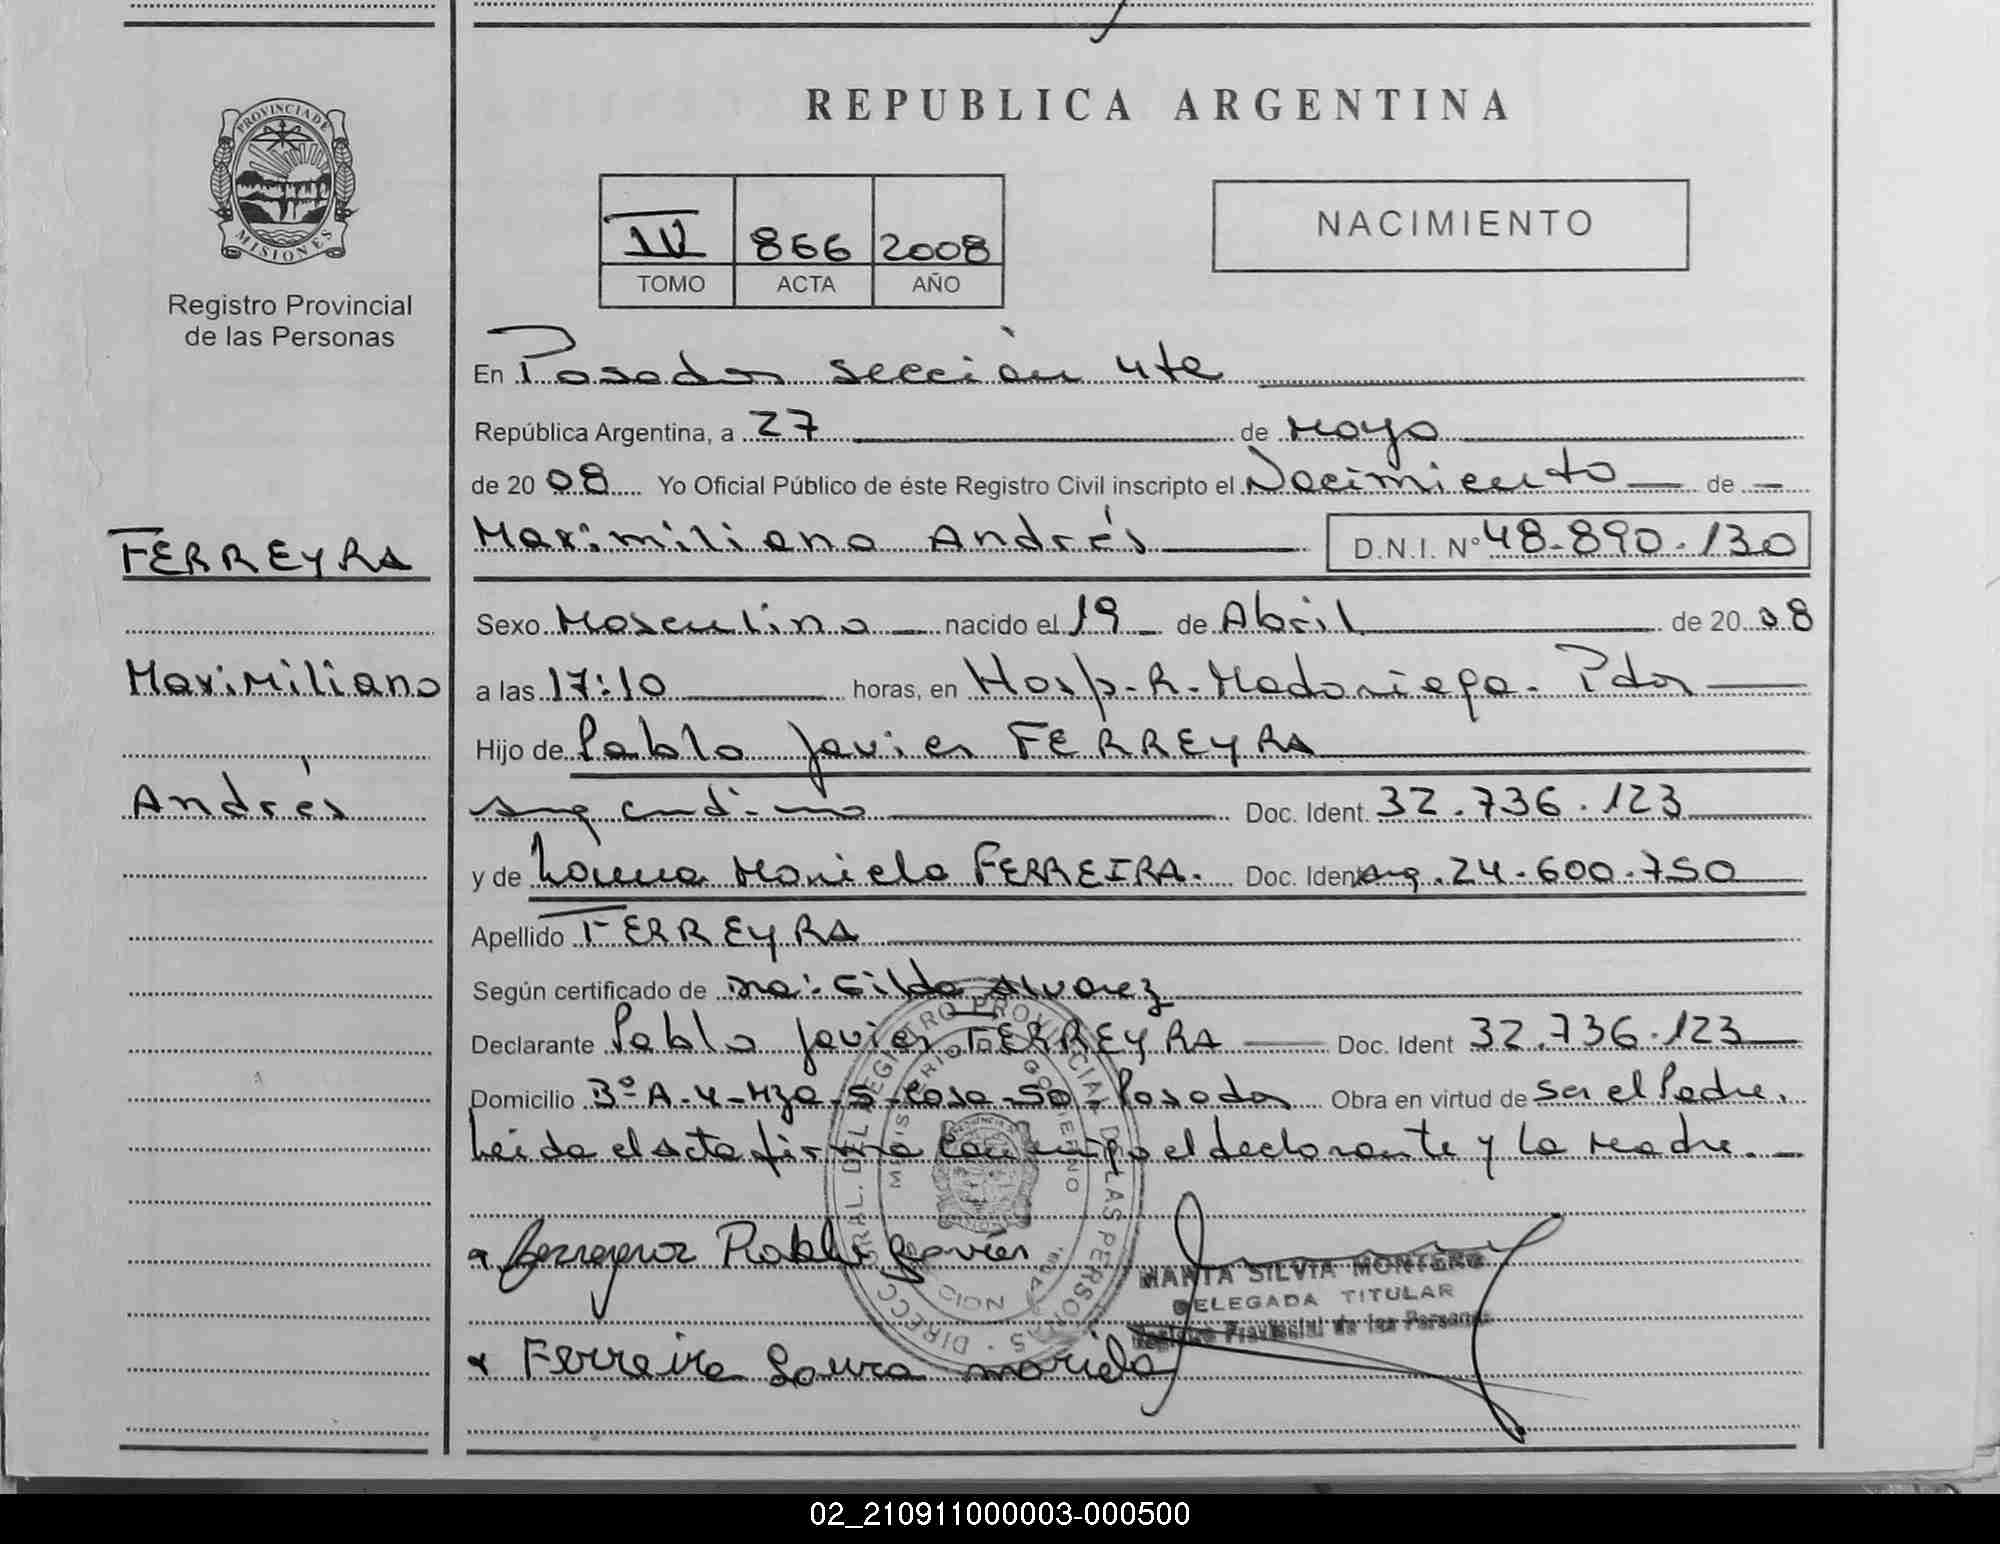 REPUBLICA ARGENTINA
PROVINCIA DE
MISIONES
Registro Provincial
de las Personas
IV 866 2008
TOMO ACTA AÑO
NACIMIENTO
En Posadas sección 4ta
República Argentina, a 27 de Mayo
de 2008 Yo Oficial Público de éste Registro Civil inscripto el Nacimiento de
FERREYRA
Maximiliano Andrés D.N.I. N° 48.890.130
Sexo Masculino nacido el 19 de Abril de 2008
Maximiliano
a las 17:10 horas, en Hosp. R. Madariaga. Pdas
Hijo de Pablo Javier FERREYRA
Andrés
argentino Doc. Ident. 32.736.123
y de Laura Mariela FERREIRA. Doc. Ident. Arg. 24.600.750
Apellido FERREYRA
Según certificado de Gilda Alvarez
Declarante Pablo Javier FERREYRA Doc. Ident 32.736.123
Domicilio B° A-4-Mza-5-Casa-50-Posadas Obra en virtud de ser el Padre.
Leida el acta firma conmigo el declarante y la madre.
Ferreyra Pablo Javier
MARTA SILVIA MONTERO
DELEGADA TITULAR
Registro Provincial de las Personas
Ferreira Laura mariela
DIRECC GRAL. DEL REGISTRO PROVINCIAL DE LAS PERSONAS
MINISTERIO DE GOBIERNO
02_210911000003-000500